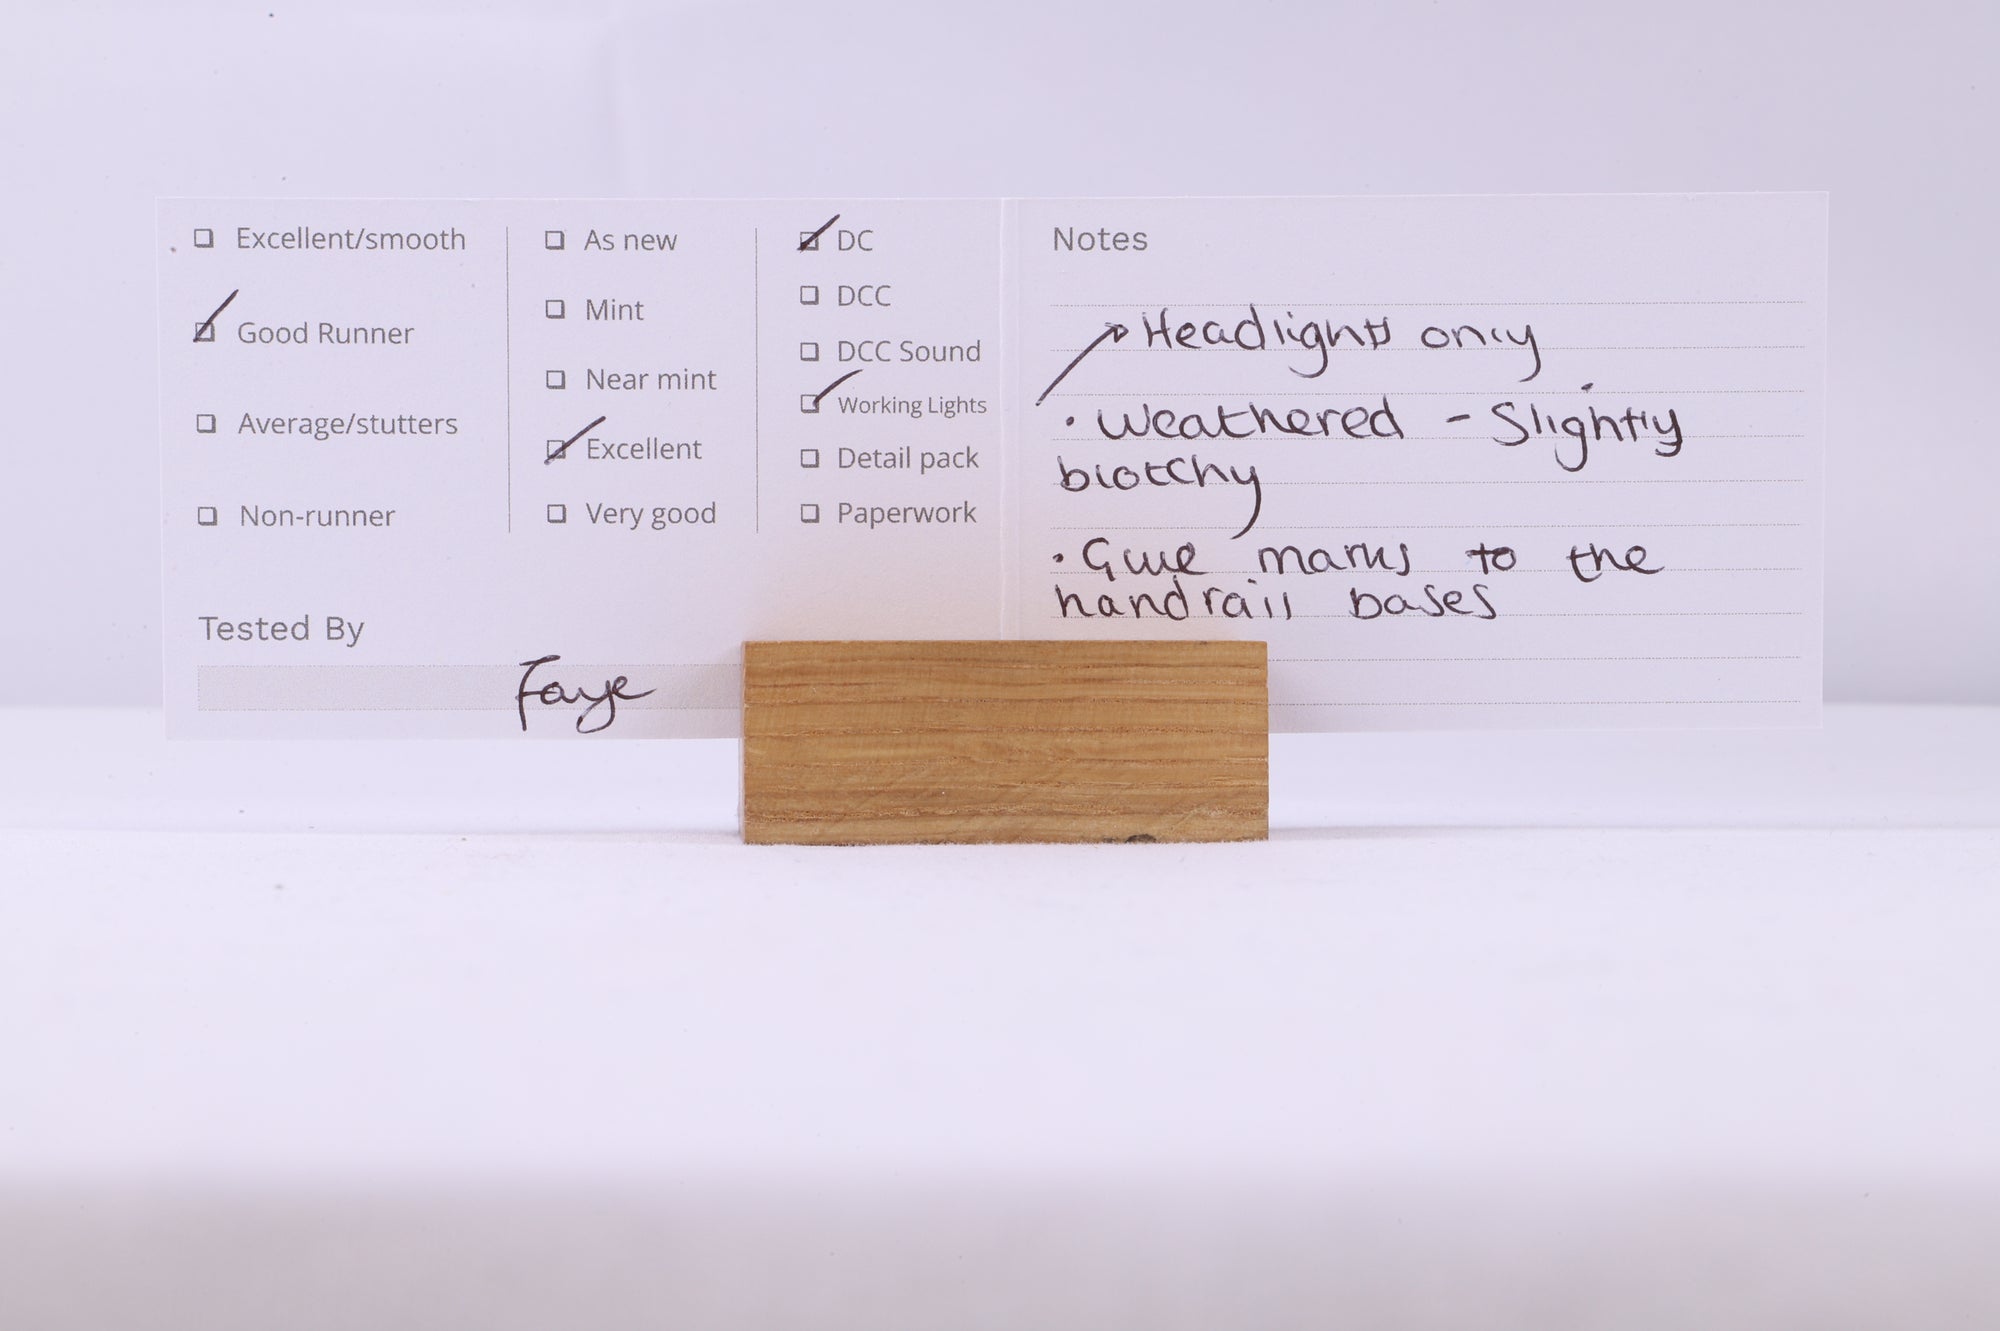 Excellent/smooth
Good Runner
Average/stutters
Non-runner
As new
Mint
Near mint
Excellent
Very good
DC
DCC
DCC Sound
Working Lights
Detail pack
Paperwork
Tested By
Faye
Notes
Headlights only
• Weathered - Slightly
blotchy
• Glue marks to the
handrail bases